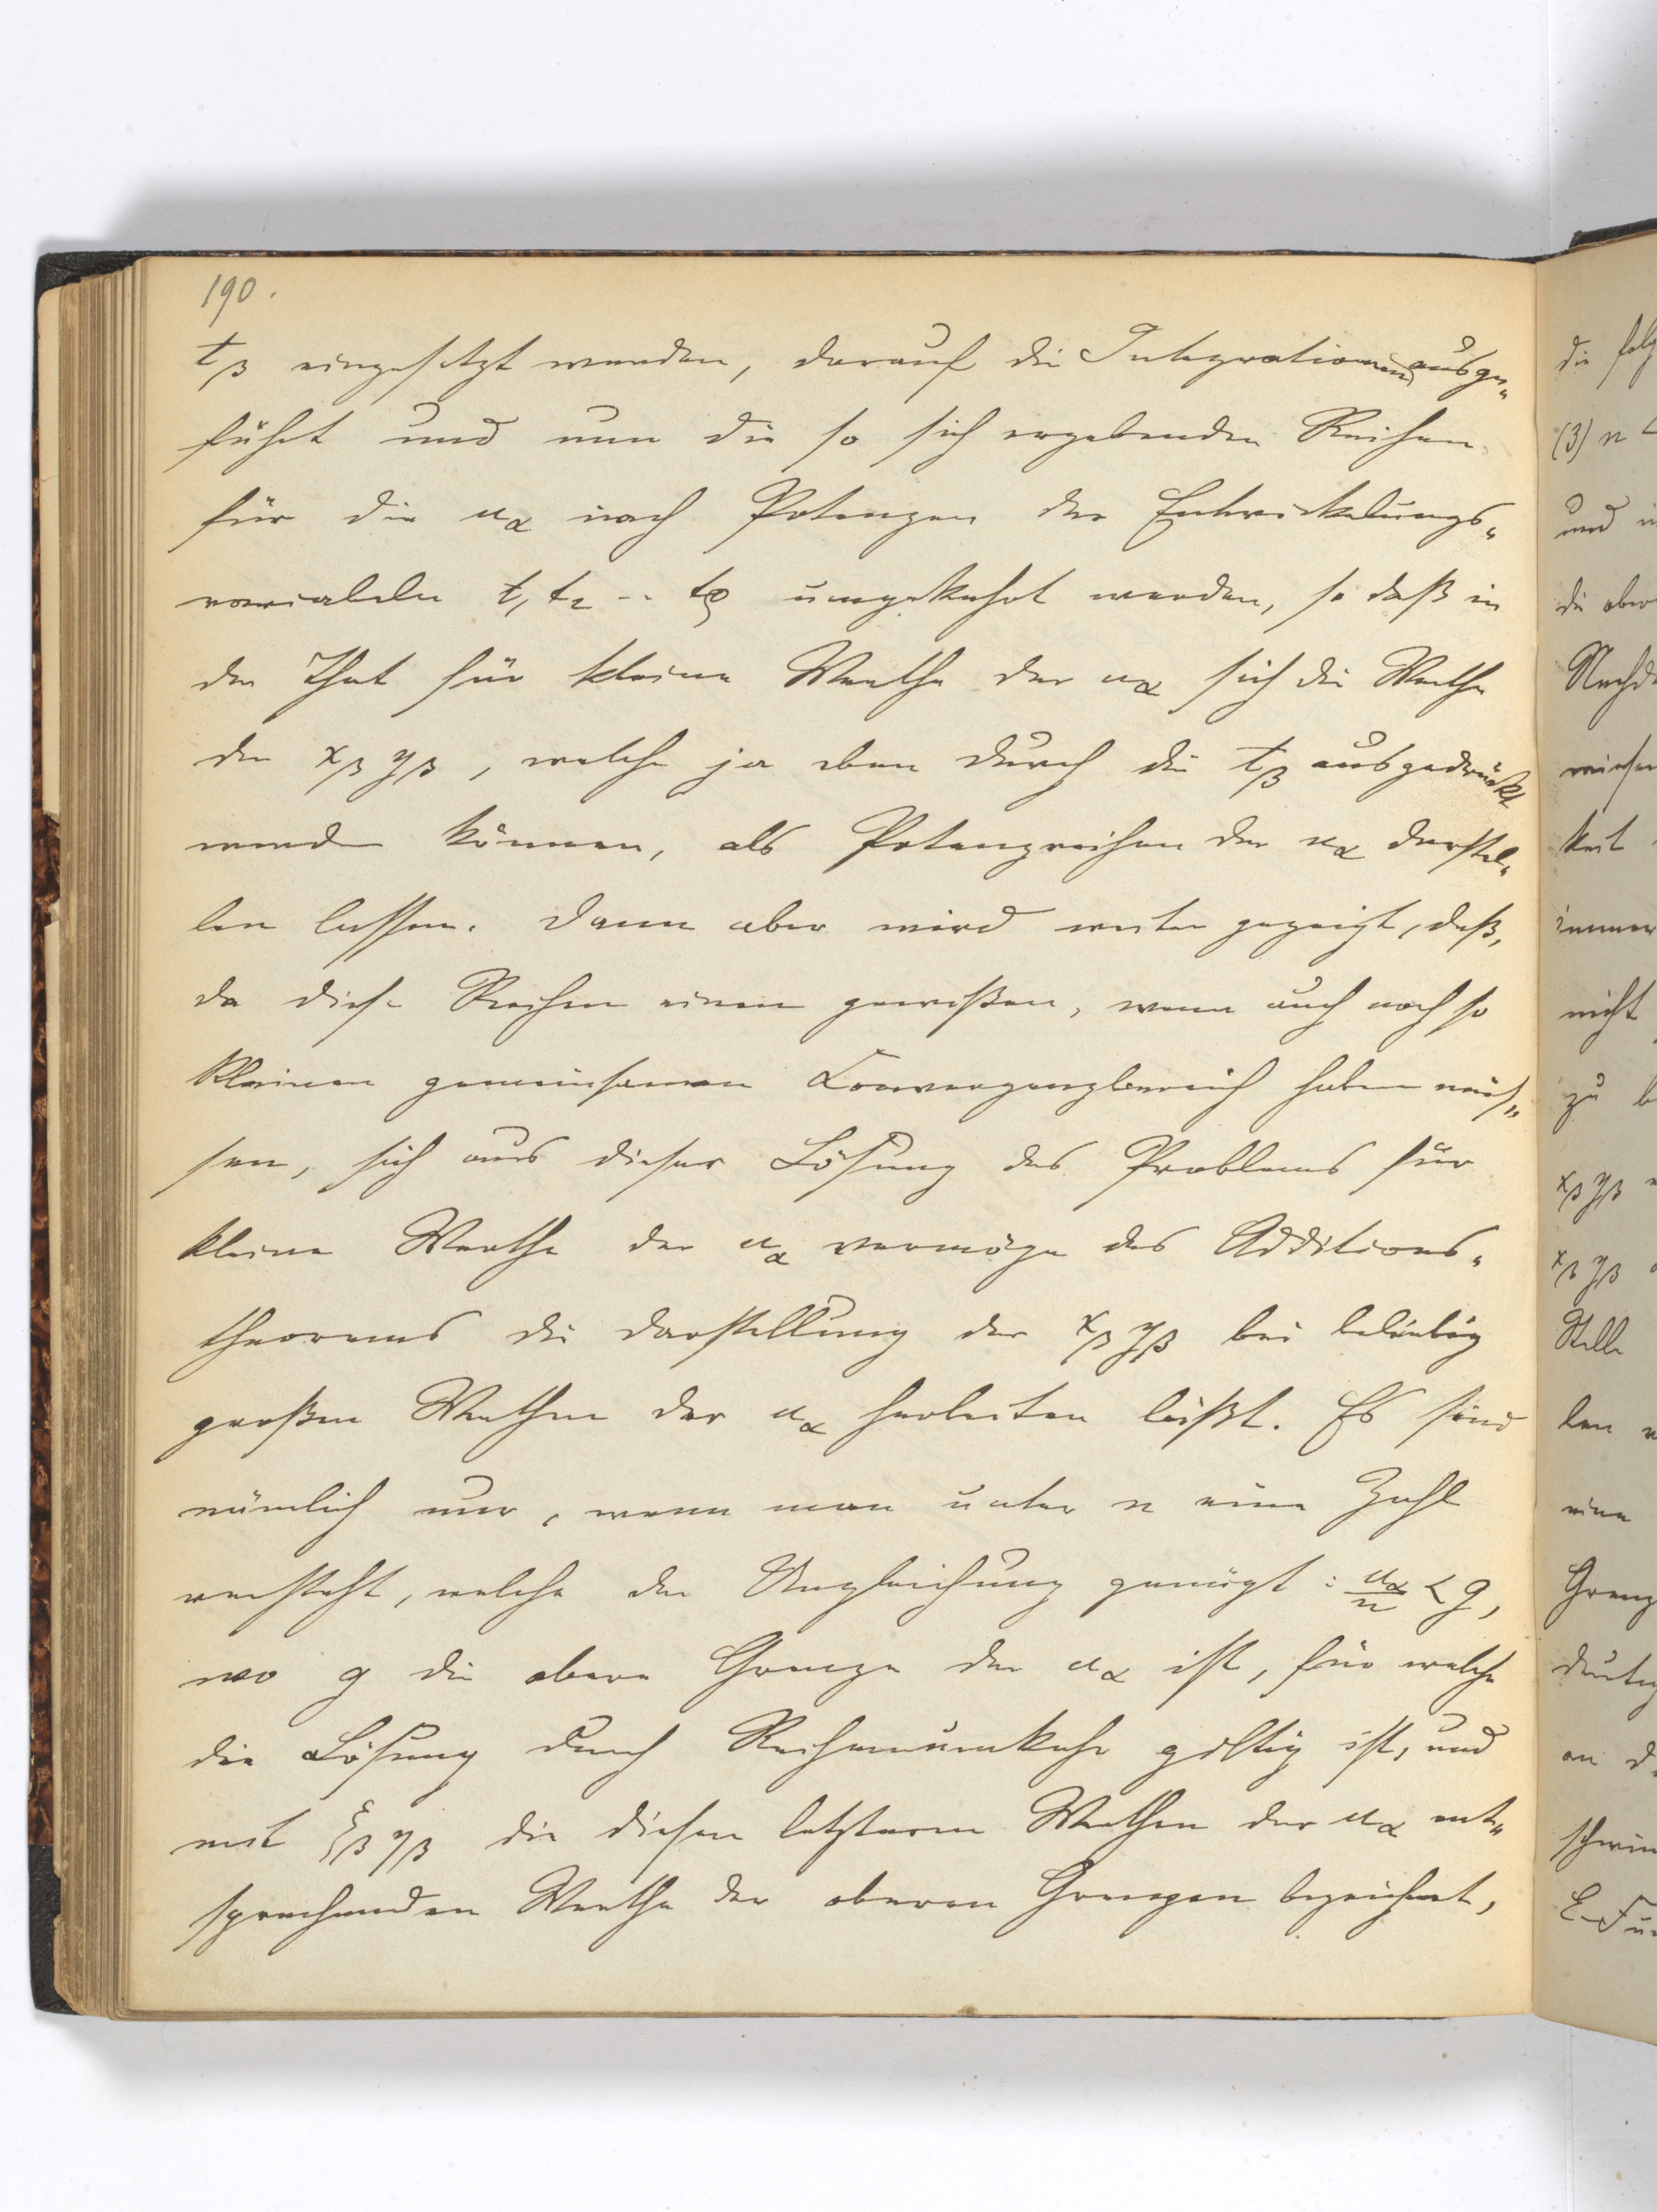 190.
t_β eingesetzt werden, darauf die Integrationen ausge-
führt und nun die so sich ergebenden Reihen
für die u_α nach Potenzen der Entwickelungs-
variabeln t_1 t_2 .. t_ρ umgekehrt werden, so daß in
der That für kleine Werthe der u_α sich die Werthe
der x_β y_β, welche ja eben durch die t_β ausgedrückt
werden können, als Potenzreihen der u_α darstel-
len lassen. Dann aber wird weiter gezeigt, daß,
da diese Reihen einen gewißen, wenn auch noch so
kleinen gemeinsamen Convergenzbereich haben müs-
sen, sich aus dieser Lösung des Problems für
kleine Werthe der u_α vermöge des Additions-
theorems die Darstellung der x_β y_β bei beliebig
großen Werthen der u_α herleiten läßt. Es sind
nämlich nur, wenn man unter n eine Zahl
versteht, welche der Ungleichung genügt: u_α/n < g,
wo g die obere Grenze der u_α ist, für welche
die Lösung durch Reihenumkehr giltig ist, und
mit ξ_β η_β die diesen letzteren Werthen der u_α ent-
sprechenden Werthe der oberen Grenzen bezeichnet,
die folg
(3) n
und
die ober
Nachd
keit
immer
nicht
zu b
x_β y_β
x_β y_β
Stelle
len
eine
Grenz
deutig
an d
schwin
E-Fu